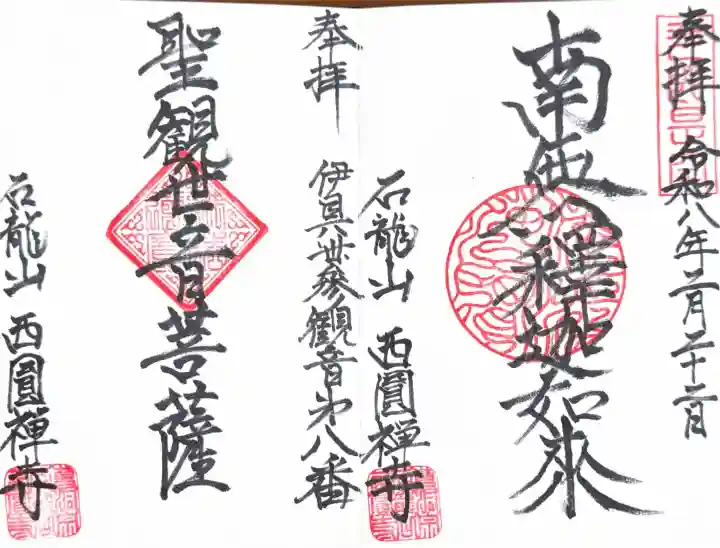 奉拝 令和八年二月二十二日
南無釋迦如来
石龍山 西圓禅寺
奉拝 伊具丗参観音第八番
聖観世音菩薩
石龍山 西圓禅寺